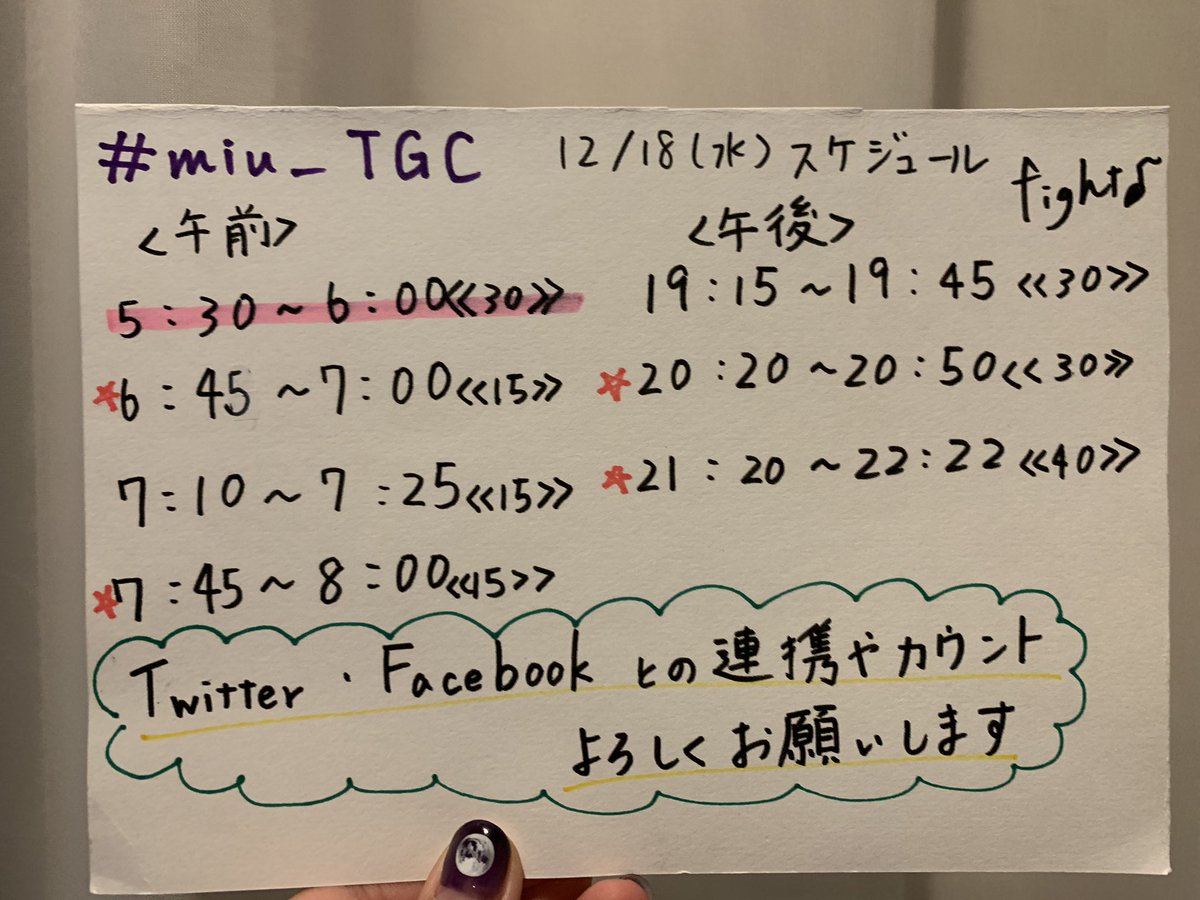 #miu_TGC 12/18(水)スケジュール fight♪
<午前>
5:30~6:00≪30≫
*6:45~7:00≪15≫
7:10~7:25≪15≫
*7:45~8:00≪15≫
<午後>
19:15~19:45≪30≫
*20:20~20:50≪30≫
*21:20~22:22≪40≫
Twitter・Facebookとの連携やカウント
よろしくお願いします